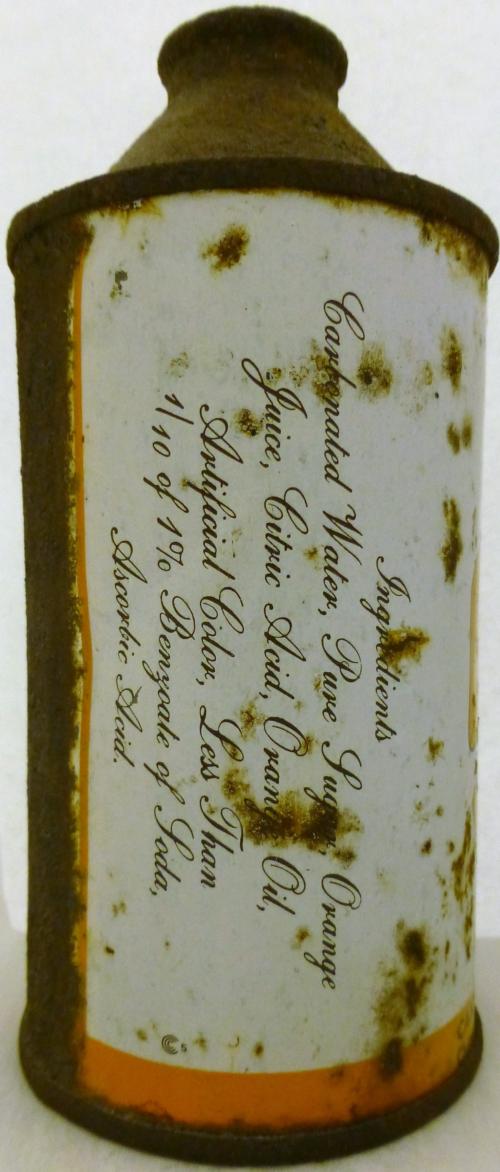 Ingredients
Carbonated Water, Pure Sugar, Orange
Juice, Citric Acid, Orange Oil,
Artificial Color, Less Than
1/10 of 1% Benzoate of Soda,
Ascorbic Acid.